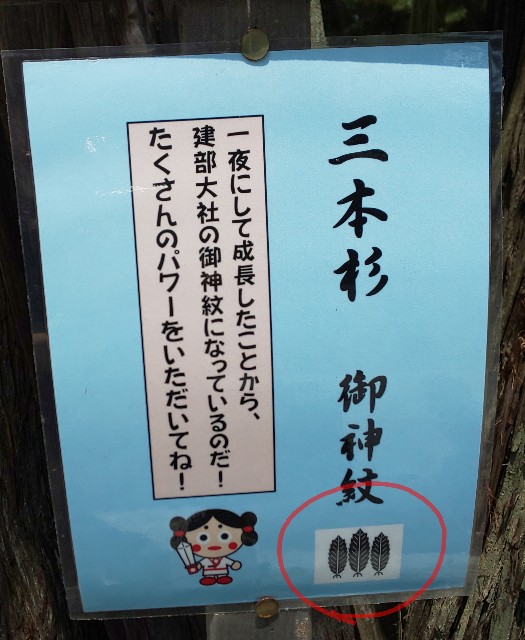 三本杉 御神紋
一夜にして成長したことから、
建部大社の御神紋になっているのだ!
たくさんのパワーをいただいてね!